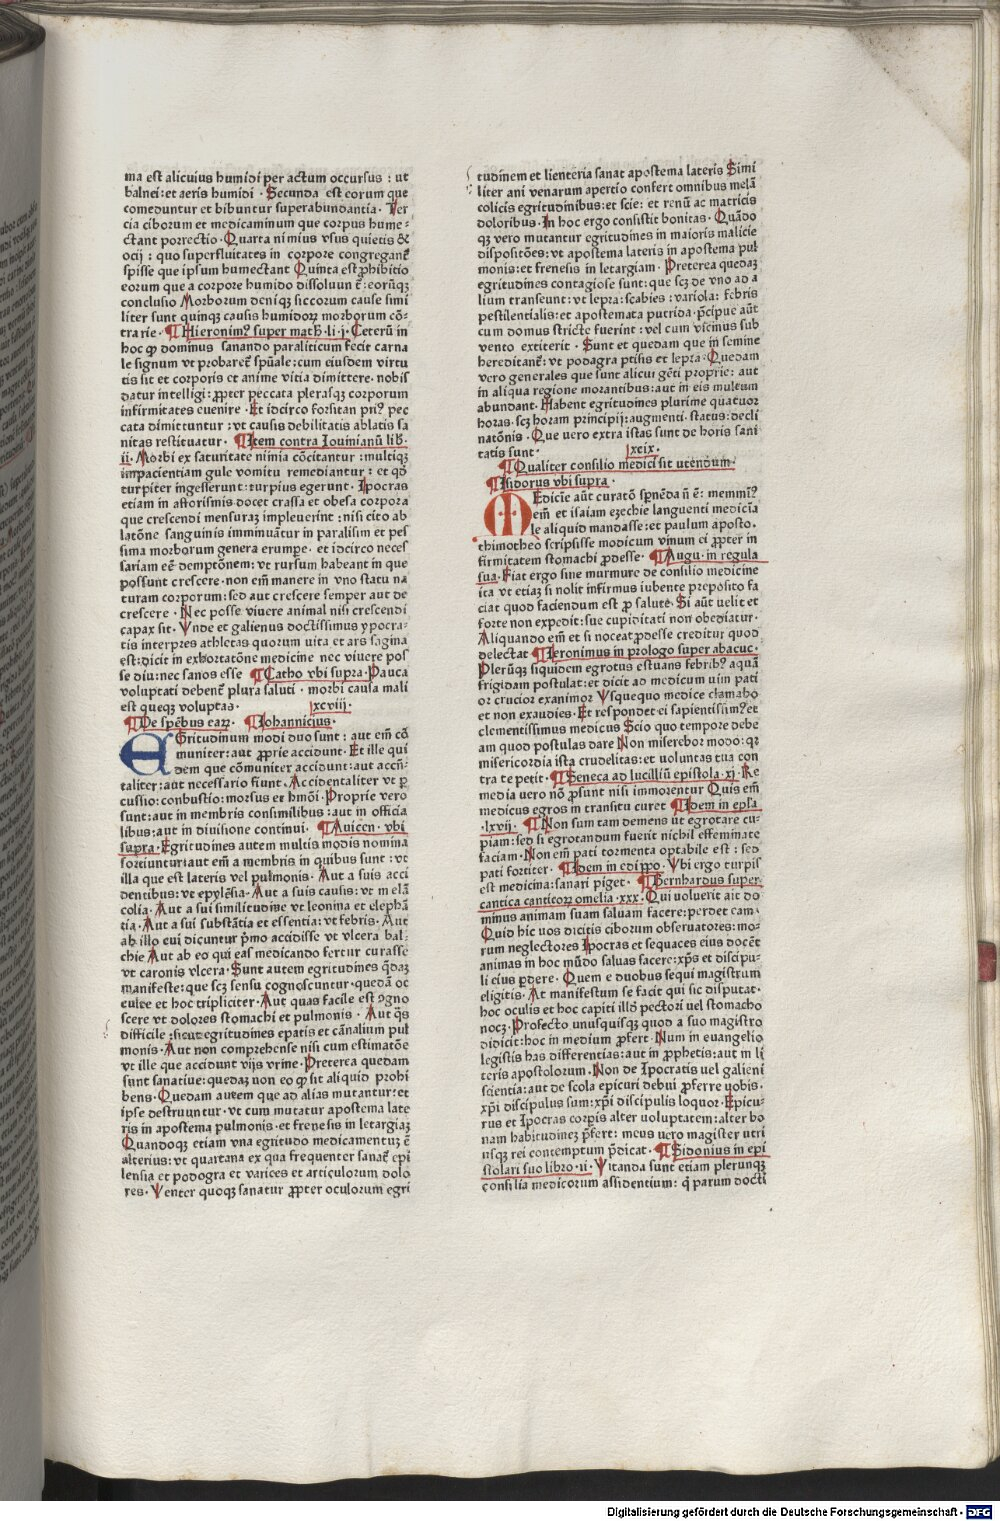 ma est alicuius humidi per actum occursus : ut
balnei: et aeris humidi · Secunda est eorum que
comeduntur et bibuntur superabundantia · Ter
cia ciborum et medicaminum que corpus hume⸗
ctant porrectio · Quarta nimius vsus quietis &
ocij : quo superfluitates in corpore congreganť
spisse que ipsum humectant Quinta est ꝓhibitio
eorum que a corpore humido dissoluunť : eorūqꝫ
conclusio Morborum deniqꝫ siccorum cause simi
liter sunt quinqꝫ causis humidoꝝ morborum cō⸗
trarie · ¶ Hieronimꝰ super math̄ · li · j · Ceterū in
hoc ꝙ dominus sanando paraliticum fecit carna
le signum vt probareť sp̄uale : cum eiusdem virtu
tis sit et corporis et anime vitia dimittere · nobis
datur intelligi : ꝓpter peccata plerasqꝫ corporum
infirmitates euenire · Et idcirco forsitan priꝰ pec
cata dimittuntur : vt causis debilitatis ablatis sa
nitas restituatur · ¶ Item contra Jouinianū lib̄ ·
ii · Morbi ex saturitate nimia cōcitantur : multiqꝫ
impacientiam gule vomitu remediantur : et qđ
turpiter ingesserunt : turpius egerunt · Ipocras
etiam in afforismis docet crassa et obesa corpora
que crescendi mensuraꝫ impleuerint : nisi cito ab
latōne sanguinis imminuātur in paralisim et pes
sima morborum genera erumpe · et idcirco neces
sariam eē demptōnem : vt rursum habeant in que
possunt crescere · non em̄ manere in vno statu na
turam corporum : sed aut crescere semper aut de
crescere · Nec posse viuere animal nisi crescendi
capax sit · Vnde et galienus doctissimus ypocra⸗
tis interpres athletas quorum uita et ars sagina
est : dicit in exhortatōne medicine nec viuere pos
se diu : nec sanos esse ¶ Catho vbi supra · Pauca
voluptati debenť plura saluti · morbi causa mali
est queqꝫ voluptas · lxcviii ·
¶ De spēbus eaꝝ · ¶ Johannicius ·
EGritudinum modi duo sunt : aut em̄ cō
muniter : aut ꝓprie accidunt · Et ille qui
dem que cōmuniter accidunt : aut accñ⸗
taliter : aut necessario fiunt · Accidentaliter vt ꝑ
cussio : conbustio : morsus et hm̄oi · Proprie vero
sunt : aut in membris consimilibus : aut in officia
libus : aut in diuisione continui · ¶ Auicen · vbi
supra · Egritudines autem multis modis nomina
sortiuntur : aut em̄ a membris in quibus sunt : vt
illa que est lateris vel pulmonis · Aut a suis acci
dentibus : vt epylēsia · Aut a suis causis : vt melan
colia · Aut a sui similitudine vt leonina et elephā
tia · Aut a sui substātia et essentia : vt febris · Aut
ab illo cui dicuntur p̄mo accidisse vt vlcera bal⸗
chie Aut ab eo qui eas medicando fertur curasse
vt caronis vlcera · Sunt autem egritudines q̄daꝫ
manifeste : que scꝫ sensu cognoscuntur · quedā oc
culte et hoc tripliciter · Aut quas facile est ꝯgno
scere vt dolores stomachi et pulmonis · Aut q̄s
difficile : sicut egritudines epatis et cānalium pul
monis · Aut non comprehense nisi cum estimatōe
vt ille que accidunt vijs vrine · Preterea quedam
sunt sanatiue : quedaꝫ non eo ꝙ sit aliquid prohi
bens · Quedam autem que ad alias mutantur : et
ipse destruuntur · vt cum mutatur apostema late
ris in apostema pulmonis · et frenesis in letargiaꝫ
Quandoqꝫ etiam vna egritudo medicamentuꝫ ē
alterius : vt quartana ex qua frequenter sanať epi
lensia et podogra et varices et articulorum dolo
res · Venter quoqꝫ sanatur ꝓpter oculorum egri
tudinem et lienteria sanat apostema lateris Simi
liter ani venarum apertio confert omnibus melā
colicis egritudinibus : et scie : et renū ac matricis
doloribus · In hoc ergo consistit bonitas · Quādo
qꝫ vero mutantur egritudines in maioris malicie
dispositōes : vt apostema lateris in apostema pul
monis : et frenesis in letargiam · Preterea quedaꝫ
egritudines contagiose sunt : que scꝫ de vno ad a
lium transeunt : vt lepra : scabies : variola : febris
pestilentialis : et apostemata putrida · p̄cipue aūt
cum domus stricte fuerint : vel cum vicinus sub
vento extiterit · Sunt et quedam que in semine
hereditanť : vt podagra ptisis et lepra · Quedam
vero generales que sunt alicui gēti proprie : aut
in aliqua regione morantibus : aut in eis multum
abundant · Habent egritudines plurime quatuor
horas · scꝫ horam principij : augmenti · status : decli
natōnis · Que vero extra istas sunt de horis sani
tatis sunt · lxcix ·
¶ Qualiter consilio medici sit utendum ·
¶ Isidorus vbi supra ·
MEdicīe aūt curatō sp̄nēda ñ ē : memmīꝰ
em̄ et isaiam ezechie languenti medicīa
le aliquid mandasse : et paulum aposto ·
thimotheo scripsisse modicum vinum ei ꝓpter in
firmitatem stomachi ꝓdesse · ¶ Augu · in regula
sua · Fiat ergo sine murmure de consilio medicine
ita vt etiaꝫ si nolit infirmus iubente preposito fa
ciat quod faciendum est ꝓ salute · Si aūt uelit et
forte non expedit : sue cupiditati non obediatur ·
Aliquando em̄ et si noceat ꝓdesse creditur quod
delectat ¶ Ieronimus in prologo super abacuc ·
Plerūqꝫ siquidem egrotus estuans febribꝰ aquā
frigidam postulat : et dicit ad medicum uim pati
or crucior exanimor Vsquequo medice clamabo
et non exaudies · Et respondet ei sapientissimꝰ et
clementissimus medicus Scio quo tempore debe
am quod postulas dare Non misereor modo : qꝛ
misericordia ista crudelitas : et voluntas tua con
tra te petit · ¶ Seneca ad lucilliū epistola · xj · Re
media vero nō ꝓsunt nisi immorentur Quis em̄
medicus egros in transitu curet ¶ Idem in epl̄a
· lxvij · ¶ Non sum tam demens ut egrotare cu⸗
piam : sed si egrotandum fuerit nichil effeminate
faciam · Non em̄ pati tormenta optabile est : sed
pati fortiter · ¶ Idem in edippo · Vbi ergo turpis
est medicina : sanari piget · ¶ Bernhardus super
cantica canticoꝝ omelia · xxx · Qui voluerit ait do
minus animam suam saluam facere : perdet eam ·
Quid hic uos dicitis ciborum obseruatores : mo⸗
rum neglectores Ipocras et sequaces eius docēt
animas in hoc mūdo saluas facere : xp̄s et discipu⸗
li eius ꝑdere · Quem e duobus sequi magistrum
eligitis · At manifestum se facit qui sic disputat ·
hoc oculis et hoc capiti illđ pectori uel stomacho
nocꝫ · Profecto unusquisqꝫ quod a suo magistro
didicit : hoc in medium ꝓfert · Num in euangelio
legistis has differentias : aut in ꝓphetis : aut in li
teris apostolorum · Non de Ipocratis uel galieni
scientia : aut de scola epicuri debui ꝓferre uobis ·
xp̄i discipulus sum : xp̄i discipulis loquor · Epicu⸗
rus et Ipocras corꝑis alter voluptatem : alter bo
nam habitudineꝫ p̄fert : meus uero magister utri
usqꝫ rei contemptum p̄dicat · ¶ Sidonius in epi
stolari suo libro · ii · Vitanda sunt etiam plerunqꝫ
consilia medicorum assidentium : q̄ parum docti
Digitalisierung gefördert durch die Deutsche Forschungsgemeinschaft · DFG